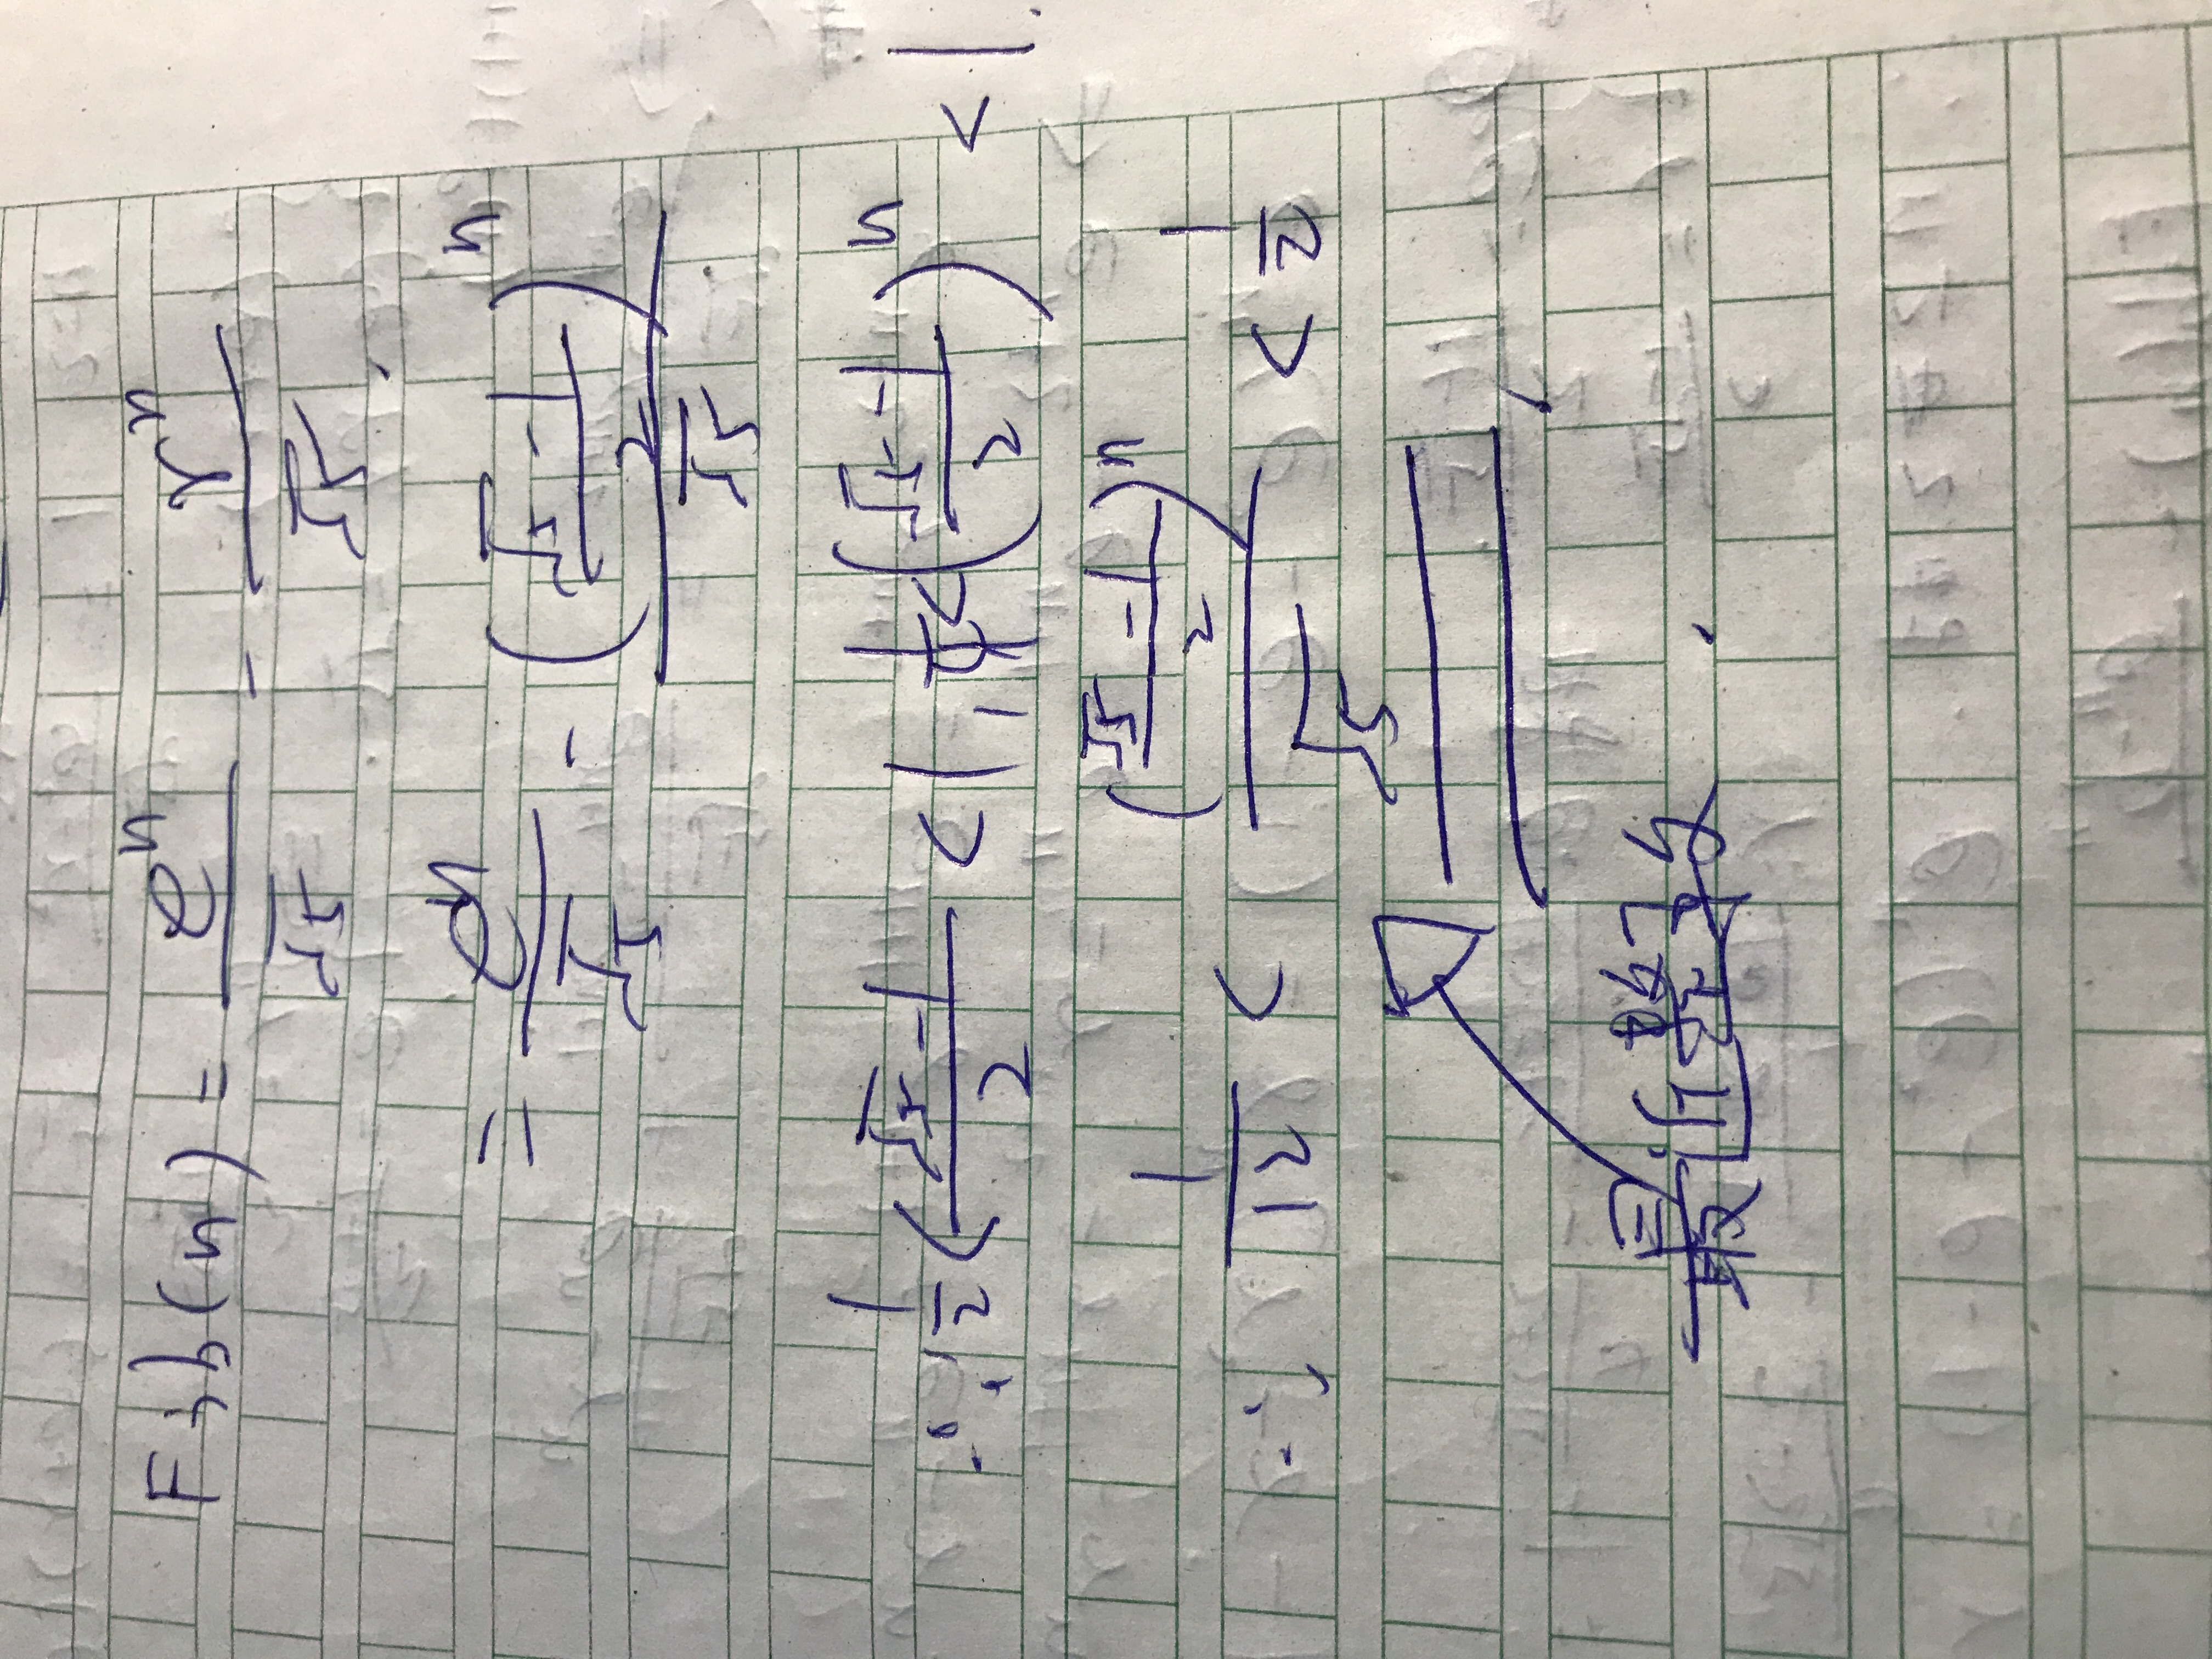 Fib(n) = e^n/√5 - r^n/√5
= e^n/√5 - ((√5-1)/2)^n/√5
∵ 1/2 < (√5-1)/2 < 1, 1/4 < ((√5-1)/2)^n < 1.
∴ 1/12 < ((√5-1)/2)^n/√5 < 1/2
最近整数